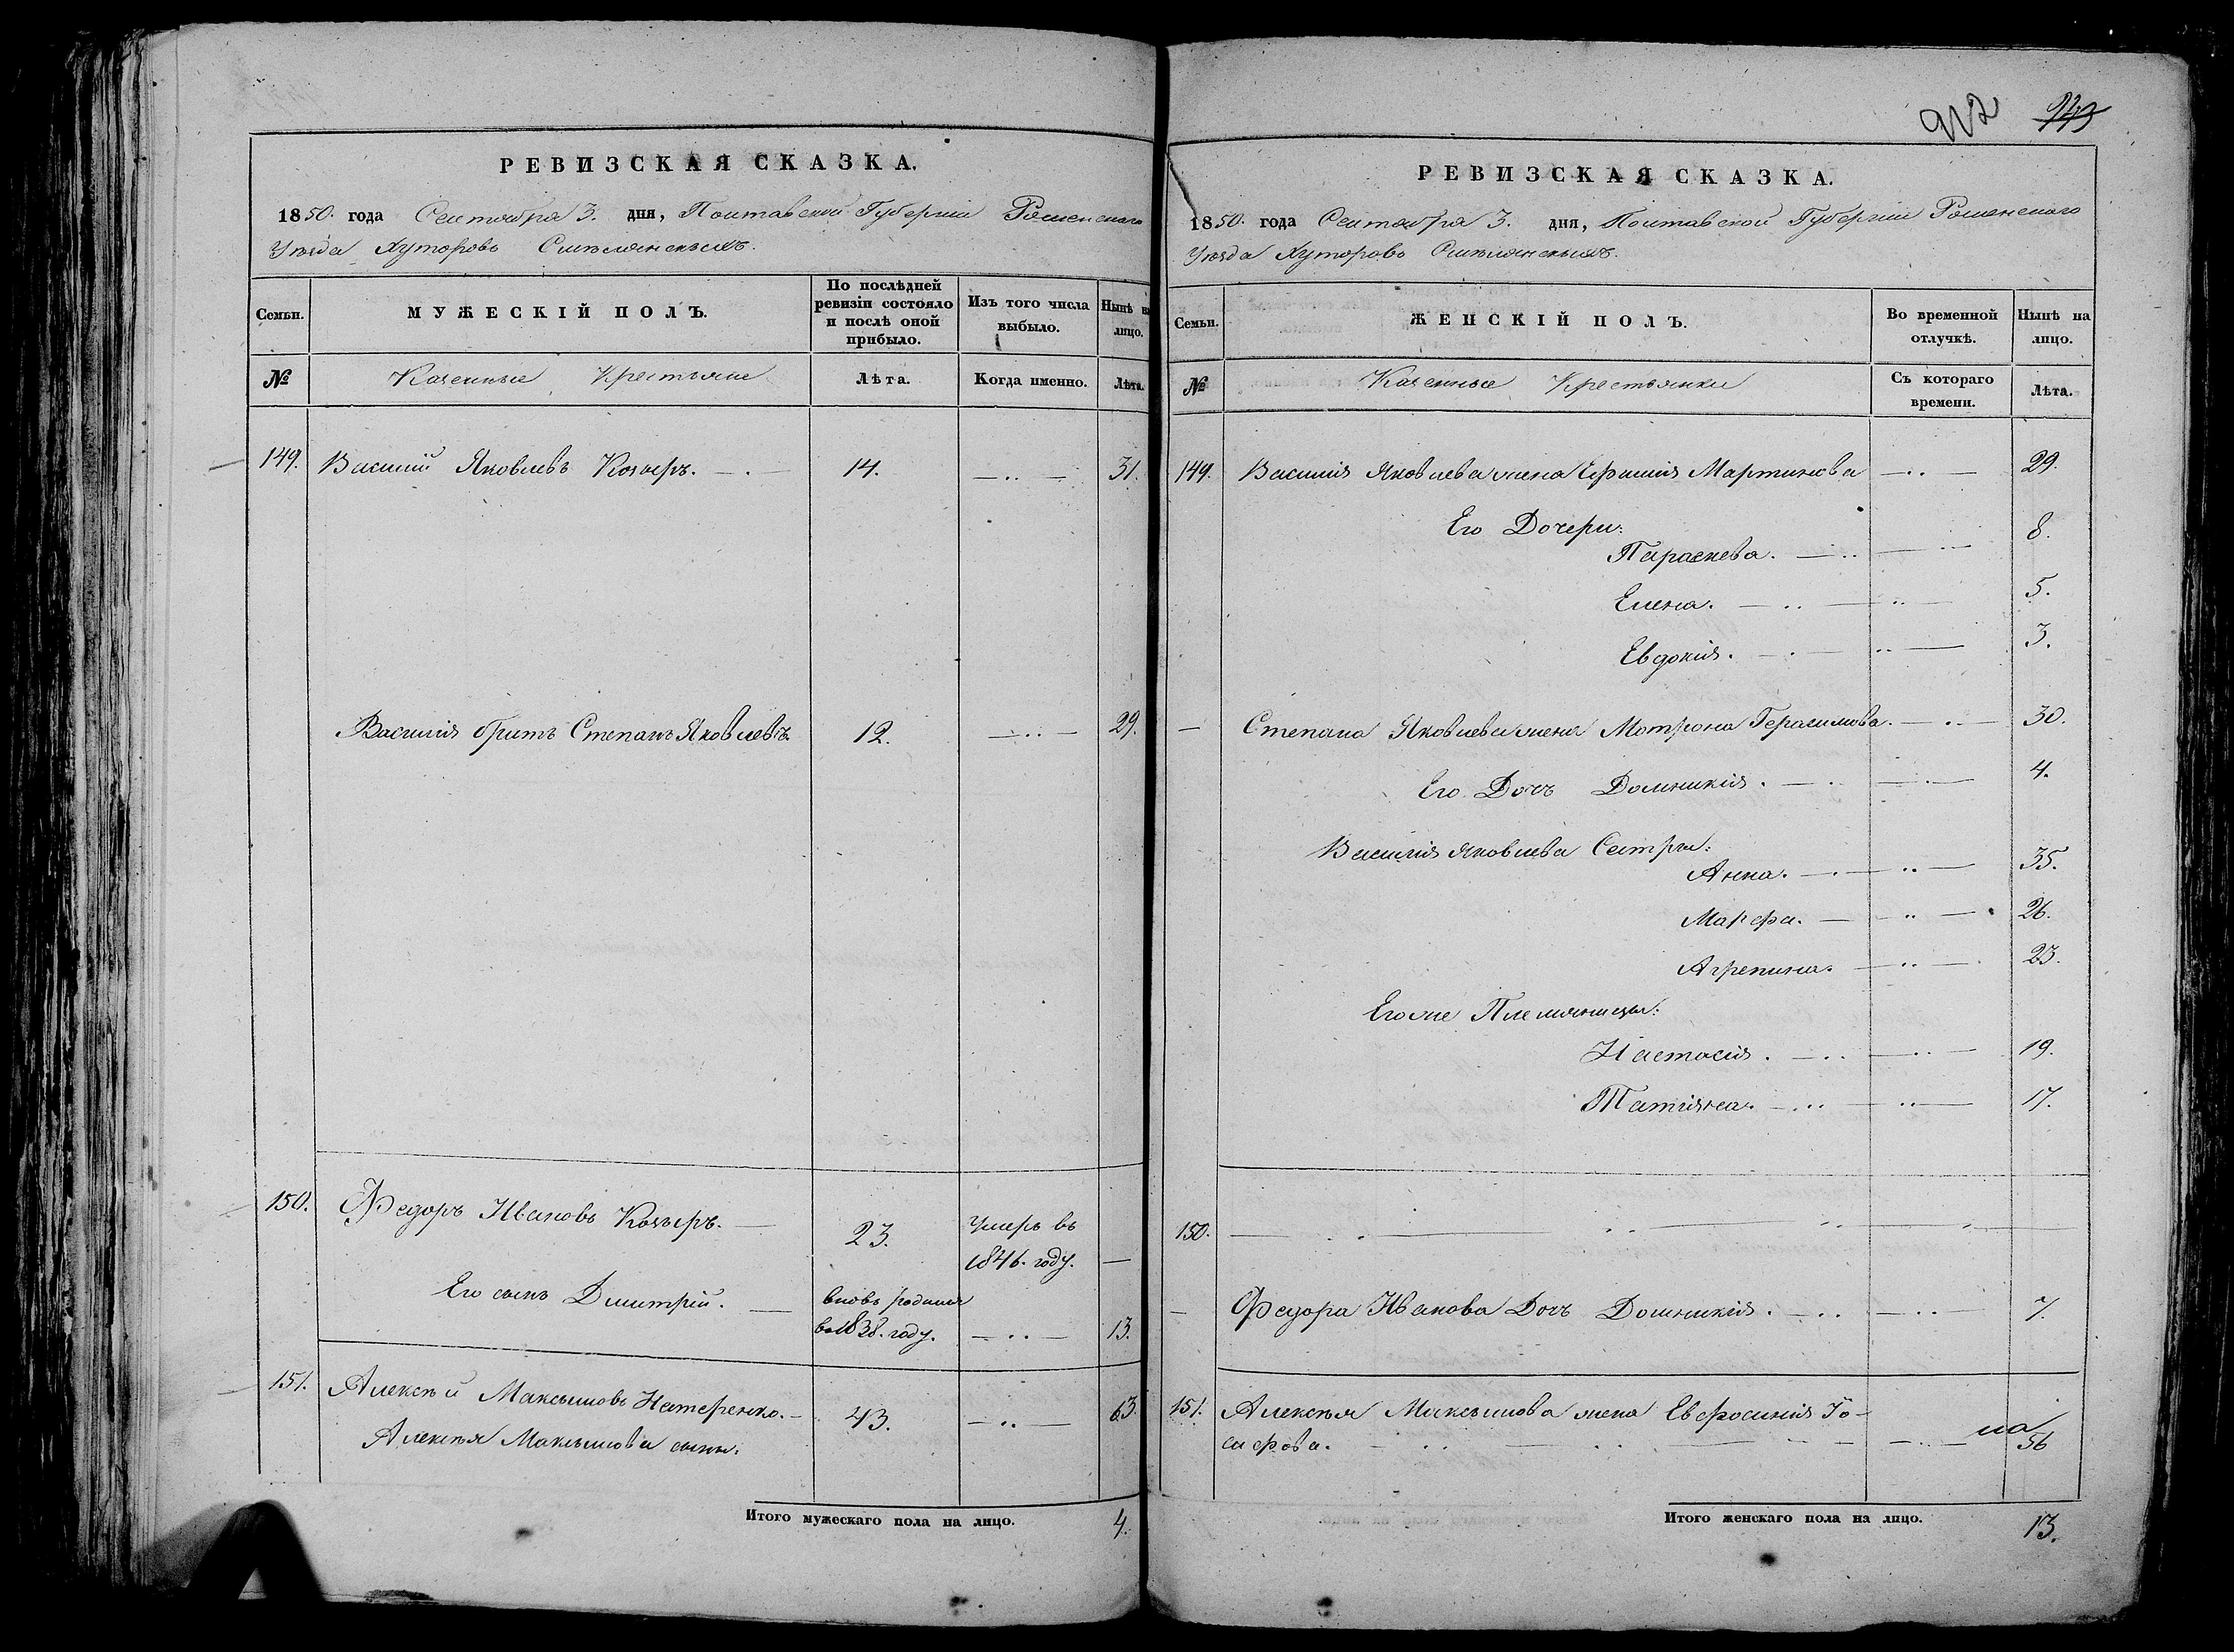 РЕВИЗСКАЯ СКАЗКА.
1850. года Сентября 3. дня, Полтавской Губерніи Роменскаго
Уѣзда Хуторовъ
Семьи.
МУЖЕСКІЙ ПОЛЪ.
По послѣдней ревизіи состояло и послѣ оной прибыло.
Изъ того числа выбыло.
Нынѣ на лицо.
№
Казенные Крестьяне
Лѣта.
Когда именно.
Лѣта.
149. Василій Яковлевъ Козыръ. 14. 31.
Василія братъ Степанъ Яковлевъ 12. 29.
150. Федоръ Ивановъ Козыръ. 23. Умеръ въ
1846. году.
Его сынъ Дмитрій. вновь родился
въ 1838. году. 13.
151. Алексѣй Максымовъ Нестеренко. 43. 63.
Алексѣя Максымова сыны:
Итого мужескаго пола на лицо. 4.
912 943
РЕВИЗСКАЯ СКАЗКА.
1850. года Сентября 3. дня, Полтавской Губерніи Роменскаго
Уѣзда Хуторовъ
Семьи.
ЖЕНСКІЙ ПОЛЪ.
Во временной отлучкѣ.
Нынѣ на лицо.
№
Казенные Крестьянки
Съ котораго времени.
Лѣта.
149. Василія Яковлева жена Ефимія Мартинова 29.
Его Дочери:
8.
Параскева.
Елена. 5.
Евдокія. 3.
Степана Яковлева жена Мотрона Герасимова. 30.
Его Дочь Домникія. 4.
Василія Яковлева Сестры:
Анна. 35.
Марфа. 26.
Агрепина. 23.
Его же Племянницы:
Настасія. 19.
Татіяна. 17.
150.
Федора Иванова Дочь Домникія. 7.
151. Алексѣя Максымова жена Евфросинія Іо-
сифова. 56
Итого женскаго пола на лицо. 13.